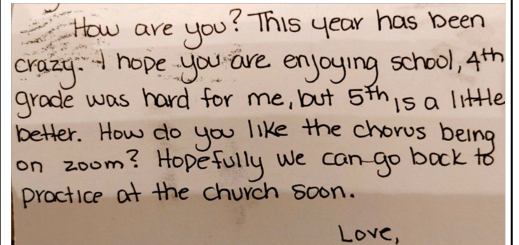 How are you? This year has been
crazy. I hope you are enjoying school, 4th
grade was hard for me, but 5th is a little
better. How do you like the chorus being
on zoom? Hopefully we can go back to
practice at the church soon.
Love,